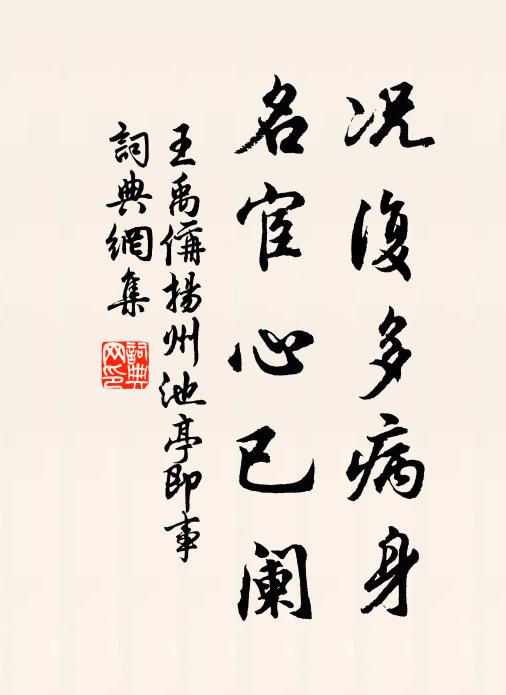 况復多病身
名宦心已阑
王禹偁揚州池亭即事
詞典網集
詞典
网印